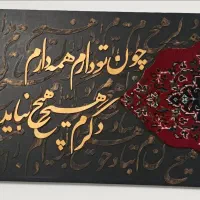 چون تو دارم همه دارم
دگرم هیچ نباید